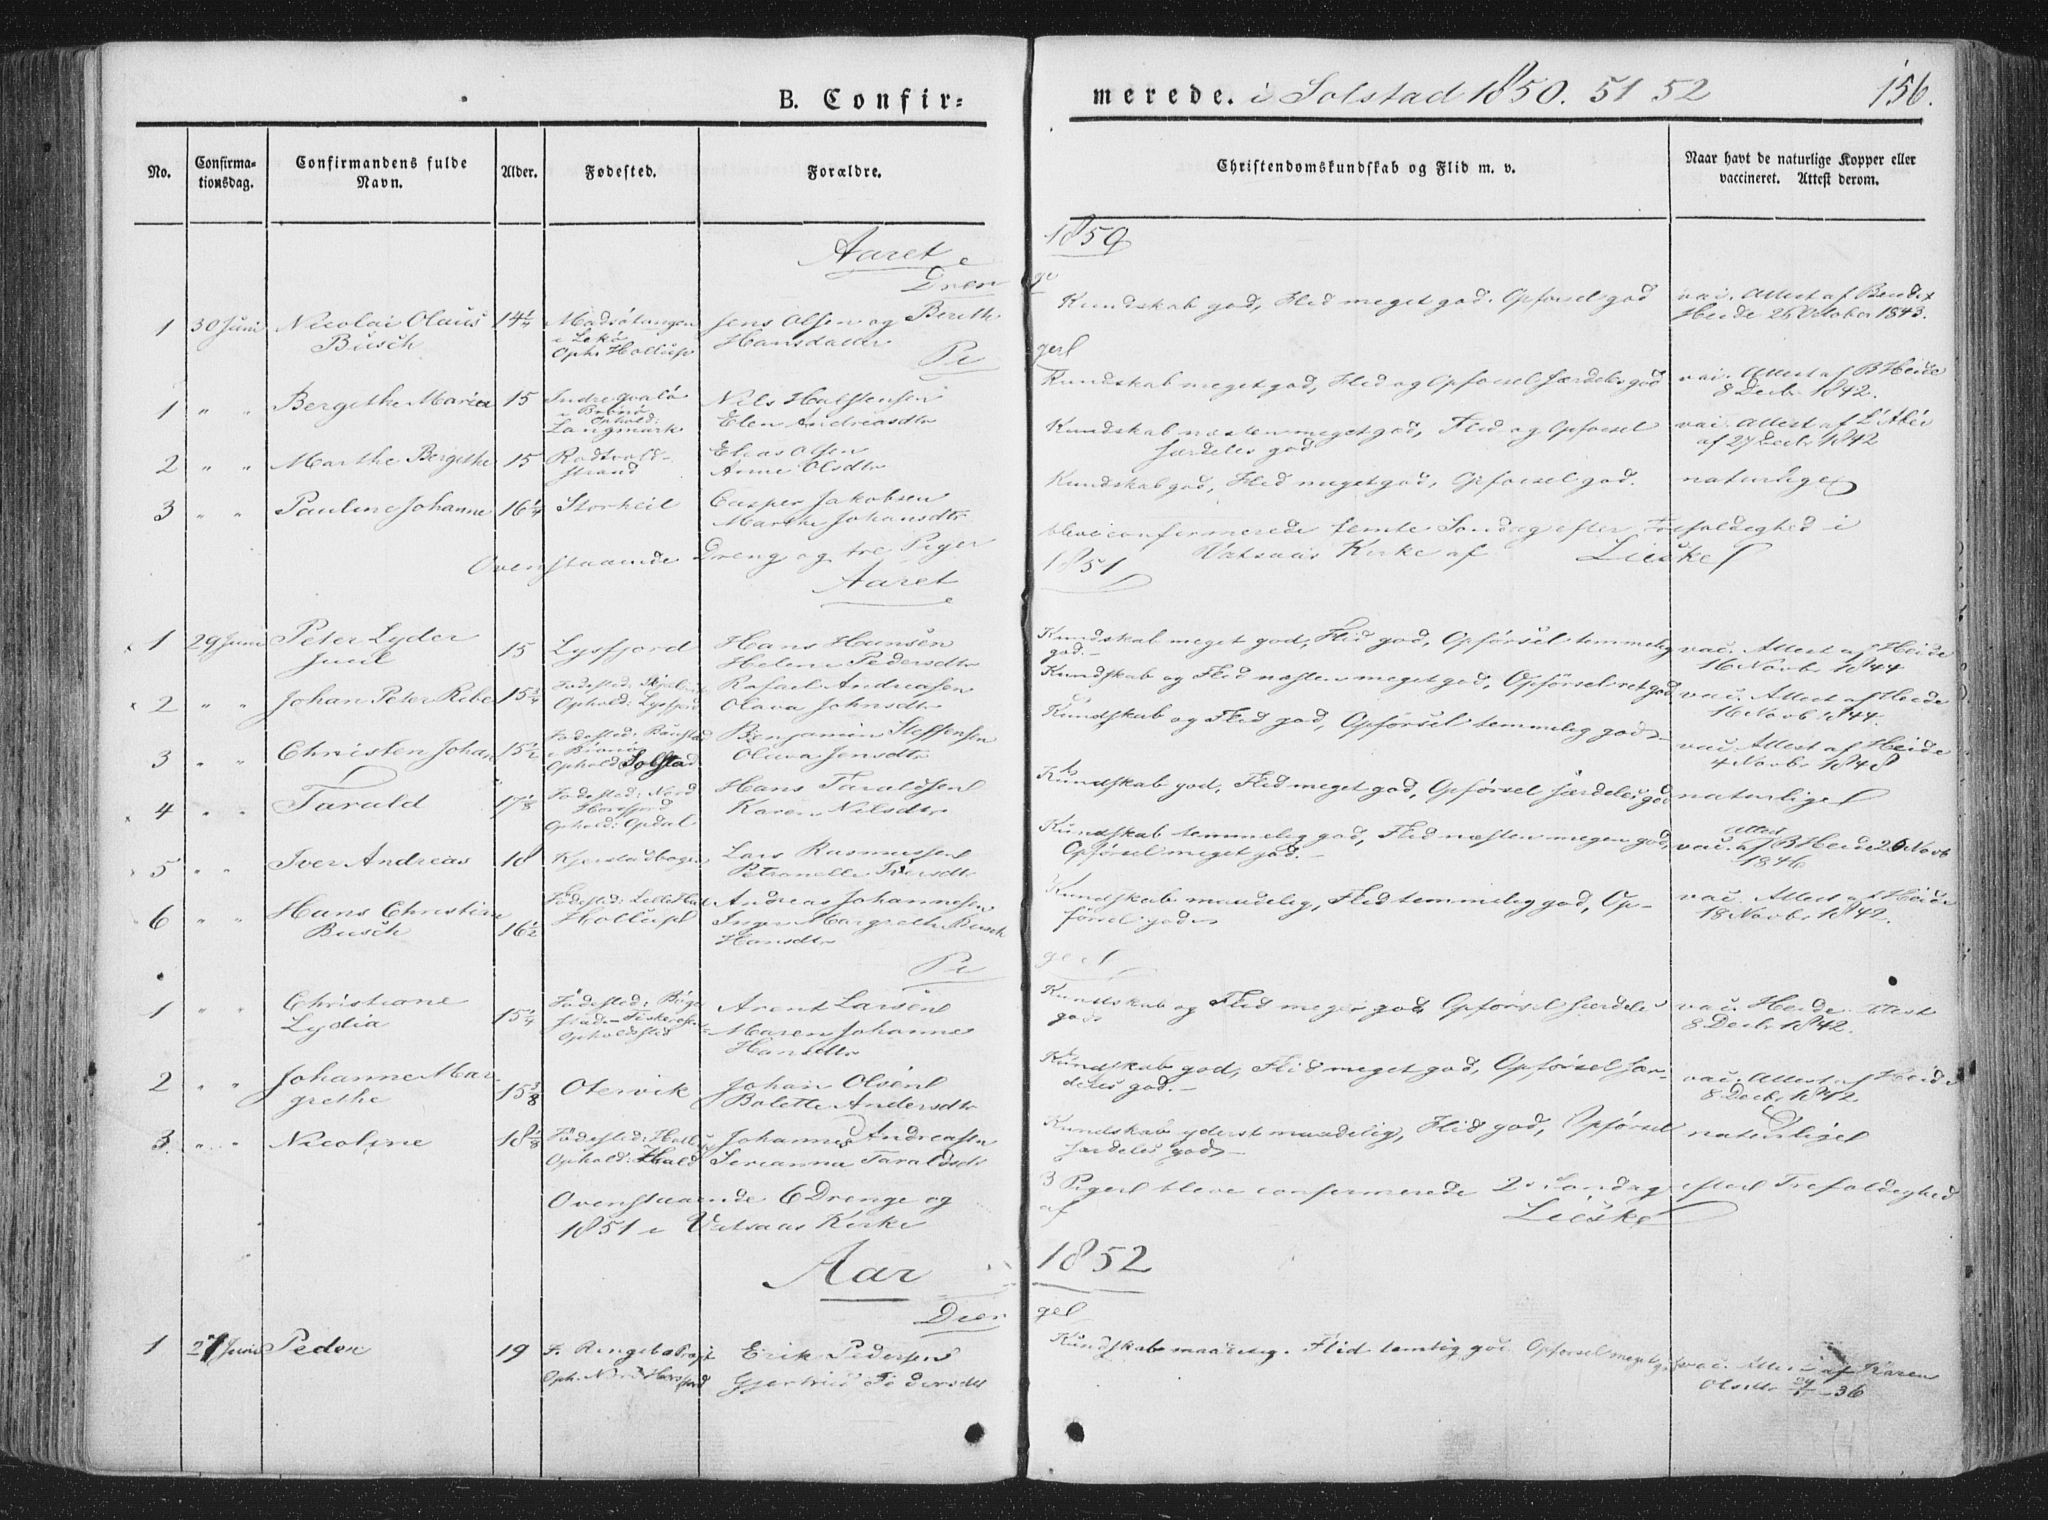 B. Confir=
merede. i Solstad 1850. 51 52
156.
No.
Confirma-
tionsdag.
Confirmandens fulde
Navn.
Alder.
Fødested.
Forældre.
Christendomskundskab og Flid m. v.
Naar havt de naturlige Kopper eller
vaccineret. Attest derom.
Aaret 1850
Dren ge
1 30 Juni Nicolai Olaus 14 1/4 Madsötangen Jens Olsen og Berith Kundskab god, Flid meget god. Opførsel god vac. Attest af Bendix
Busch i Lekö Hansdatter Heide 26 October 1843.
Oph:
Pi ger
1 " " Bergithe Maria 15 Indre Nils Kundskab meget god, Flid og Opførsel særdeles god vac. Attest af B Heide
i Brönö Elen Andreasdtr 8 Decbr 1842.
Ophold:
Langmark
2 " " Marthe Bergithe 15 Elias Olsen Kundskab næsten meget god, Flid og Opførsel vac. Attest af
strand Anne Olsdtr særdeles god af 27 Decbr 1842
3 " " Pauline Johanne 16 1/4 Storheil Casper Jakobsen Kundskab god, Flid meget god, Opførsel god. naturlige
Marthe Johansdtr
Ovenstaaende Dreng og tre Piger bleve confirmerede femte Søndag efter Trefoldighed i
Vatsaas Kirke af Lieske
Aaret 1851
1 29 Juni Peter Lyder 15 Lysfjord Hans Hansen Kundskab meget god, Flid god, Opførsel temmelig vac. Attest af Heide
Juul Helene Pedersdtr god.- 16 Novbr 1844
2 " " Johan Peter Ribe 15 3/4 Fødested: Rafael Andreasen Kundskab og Flid næsten meget god, Opførsel ret god vac. Attest af Heide
Ophold: Lysfjord Olava Johnsdtr 16 Novb 1844.
3 " " Christen Johan 15 1/2 Fødested: Benjamin Steffensen Kundskab og Flid god, Opførsel temmelig god vac. Attest af Heide
i Brönö Oliva Jensdtr 4 Novbr 1848
Ophold: Solstad
4 " " Tarald 17 1/8 Fødested: Nord Hans Taraldsen Kundskab god, Flid meget god, Opførsel særdeles god naturlige
Horsfjord Karen Nilsdtr
Ophold: Opdal
5 " " Iver Andreas 18 Lars Rasmussen Kundskab temmelig god, Flid næsten megen god, Attest
Petronelle Iversdtr Opførsel meget god. vac. af B Heide 26 Novb
1846
6 " " Hans Christian 16 1/2 Fødested: Andreas Johannesen Kundskab maadelig, Flid temmelig god, Op- vac. Attest af Heide
Busch Inger Margrethe Busch førsel god 18 Novbr 1842.
Hansdtr
Pi ger
1 " " Christiane 15 1/4 Fødested: Arent Larsen Kundskab og Flid meget god, Opførsel særdeles vac. Heide Attest
Lydia Maren Johanne god 8 Decbr 1842.
Opholdssted Hansdtr
2 " " Johanne Mar- 15 3/8 Otervik Johan Olsen Kundskab god, Flid meget god, Opførsel sær- vac. Attest af Heide
grethe Bolette Andersdtr deles god.- 8 Decbr 1842.
3 " " Nicoline 18 1/8 Fødested: Johannes Andreasen Kundskab yderst maadelig, Flid god, Opførsel naturlige
Ophold: Hald Serianna Taraldsdtr særdeles god
Ovenstaaende 6 Drenge og 3 Piger bleve confirmerede 2n Søndag efter Trefoldighed
1851 i Vatsaas Kirke af Lieske
Aar 1852
Dren ger
1 27 Juni Peder 19 F. Ringebo Erik Pedersen Kundskab maadelig. Flid temlig god Opførsel meget god vac. Attest af Karen
Oph. Nord Horsfjord Gjertrud Pedersdtr Olsdtr